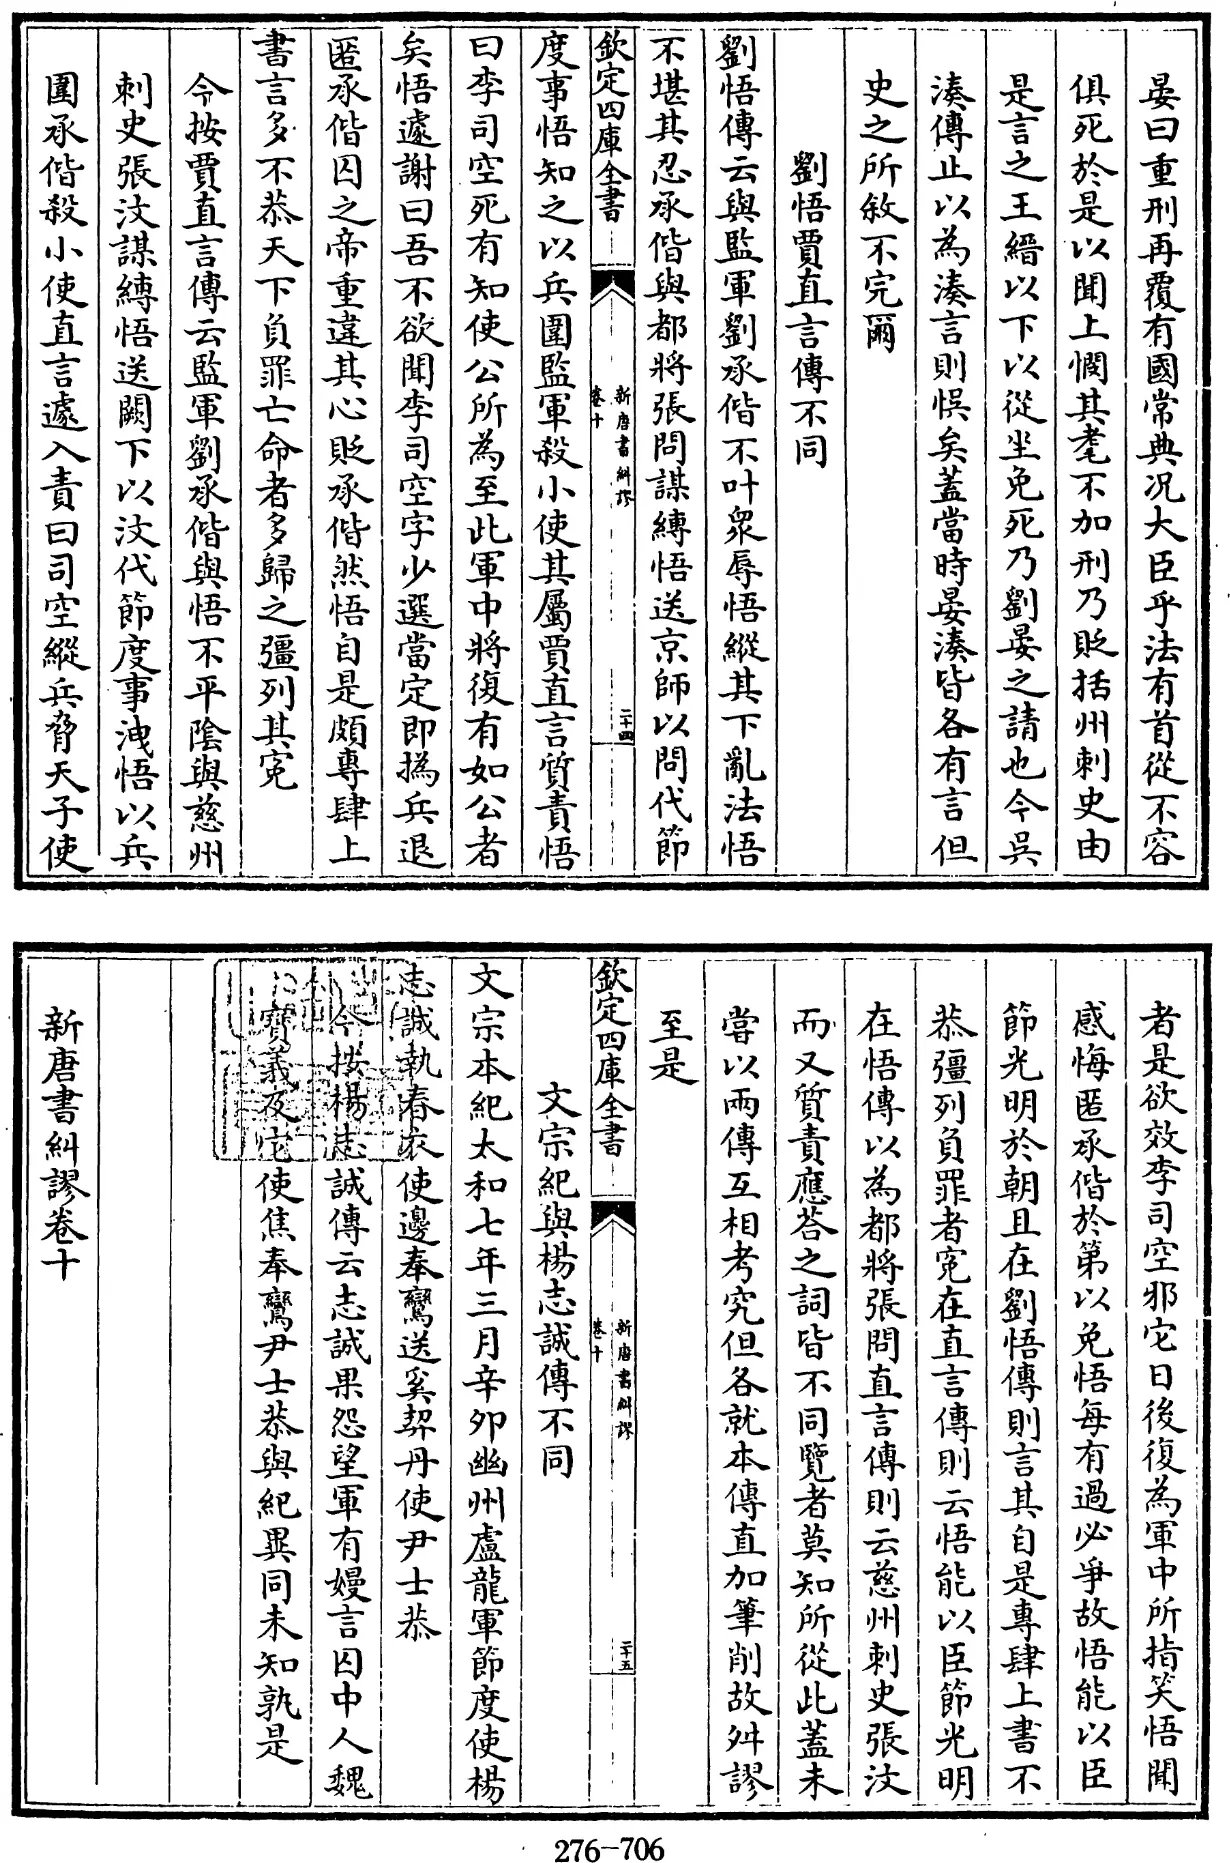 晏曰重刑再覆有國常典况大臣乎法有首從不容
俱死於是以聞上憫其耄不加刑乃貶括州刺史由
是言之王縉以下以從坐免死乃劉晏之請也今吳
湊傳止以為湊言則悞矣蓋當時晏湊皆各有言但
史之所敘不完爾
劉悟賈直言傳不同
劉悟傳云與監軍劉承偕不叶衆辱悟縱其下亂法悟
不堪其忍承偕與都將張問謀縛悟送京師以問代節
欽定四庫全書
新唐書糾謬
卷十
二十四
度事悟知之以兵圍監軍殺小使其屬賈直言質責悟
曰李司空死有知使公所為至此軍中將復有如公者
矣悟遽謝曰吾不欲聞李司空字少選當定即撝兵退
匿承偕囚之帝重違其心貶承偕然悟自是頗專肆上
書言多不恭天下負罪亡命者多歸之彊列其寃
今按賈直言傳云監軍劉承偕與悟不平陰與慈州
刺史張汶謀縛悟送闕下以汶代節度事洩悟以兵
圍承偕殺小使直言遽入責曰司空縱兵脅天子使
者是欲效李司空邪它日後復為軍中所指笑悟聞
感悔匿承偕於第以免悟每有過必爭故悟能以臣
節光明於朝且在劉悟傳則言其自是專肆上書不
恭彊列負罪者寃在直言傳則云悟能以臣節光明
在悟傳以為都將張問直言傳則云慈州刺史張汶
而又質責應荅之詞皆不同覽者莫知所從此蓋未
嘗以兩傳互相考究但各就本傳直加筆削故舛謬
至是
欽定四庫全書
新唐書糾謬
卷十
二十五
文宗紀與楊志誠傳不同
文宗本紀太和七年三月辛夘幽州盧龍軍節度使楊
志誠執春衣使邊奉鸞送奚契丹使尹士恭
今按楊志誠傳云志誠果怨望軍有嫚言囚中人魏
寶義及它使焦奉鸞尹士恭與紀異同未知孰是
新唐書糾謬卷十
276-706